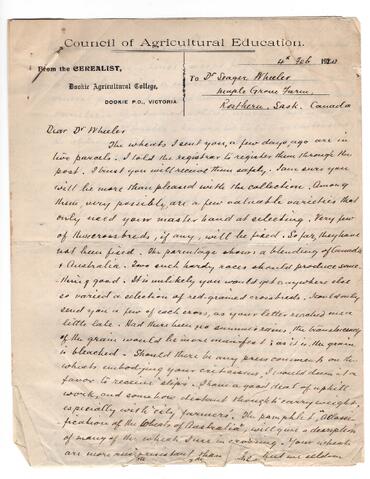 Council of Agricultural Education.
4th Feb 1920
From the CEREALIST,
Dookie Agricultural College,
DOOKIE P.O., VICTORIA
To Dr Seager Wheeler
Maple Grove Farm,
Rosthern. Sask. Canada
Dear Dr Wheeler
The wheats I sent you, a few days ago are in
five parcels. I told the registrar to register them through the
post. I trust you will receive them safely. I am sure you
will be more than pleased with the collection. Among
them, very possibly, are a few valuable varieties that
only need your master hand at selecting. Very few
of these crossbreds, if any, will be fixed. So far, they have
not been fixed. The parentage shows a blending of Canada
& Australia. Two such hardy races should produce some-
thing good. It is unlikely you would get anywhere else
so varied a selection of red grained crossbreds. I could only
send you a few of each cross, as your letter reached me a
little late. Had there been no summer rains, the translucency
of the grain would be more manifest; as it is, the grain
is bleached. Should there be any press comments on the
wheats embodying your criticisms, I would deem it a
favor to receive slips. I have a good deal of uphill
work, and somehow distant thoughts carry weight,
especially with "city farmers". The pamphlet, "Classi-
fication of the Wheats of Australia", will give a description
of many of the wheats I use in crossing. Your wheats
are more rust resistant than